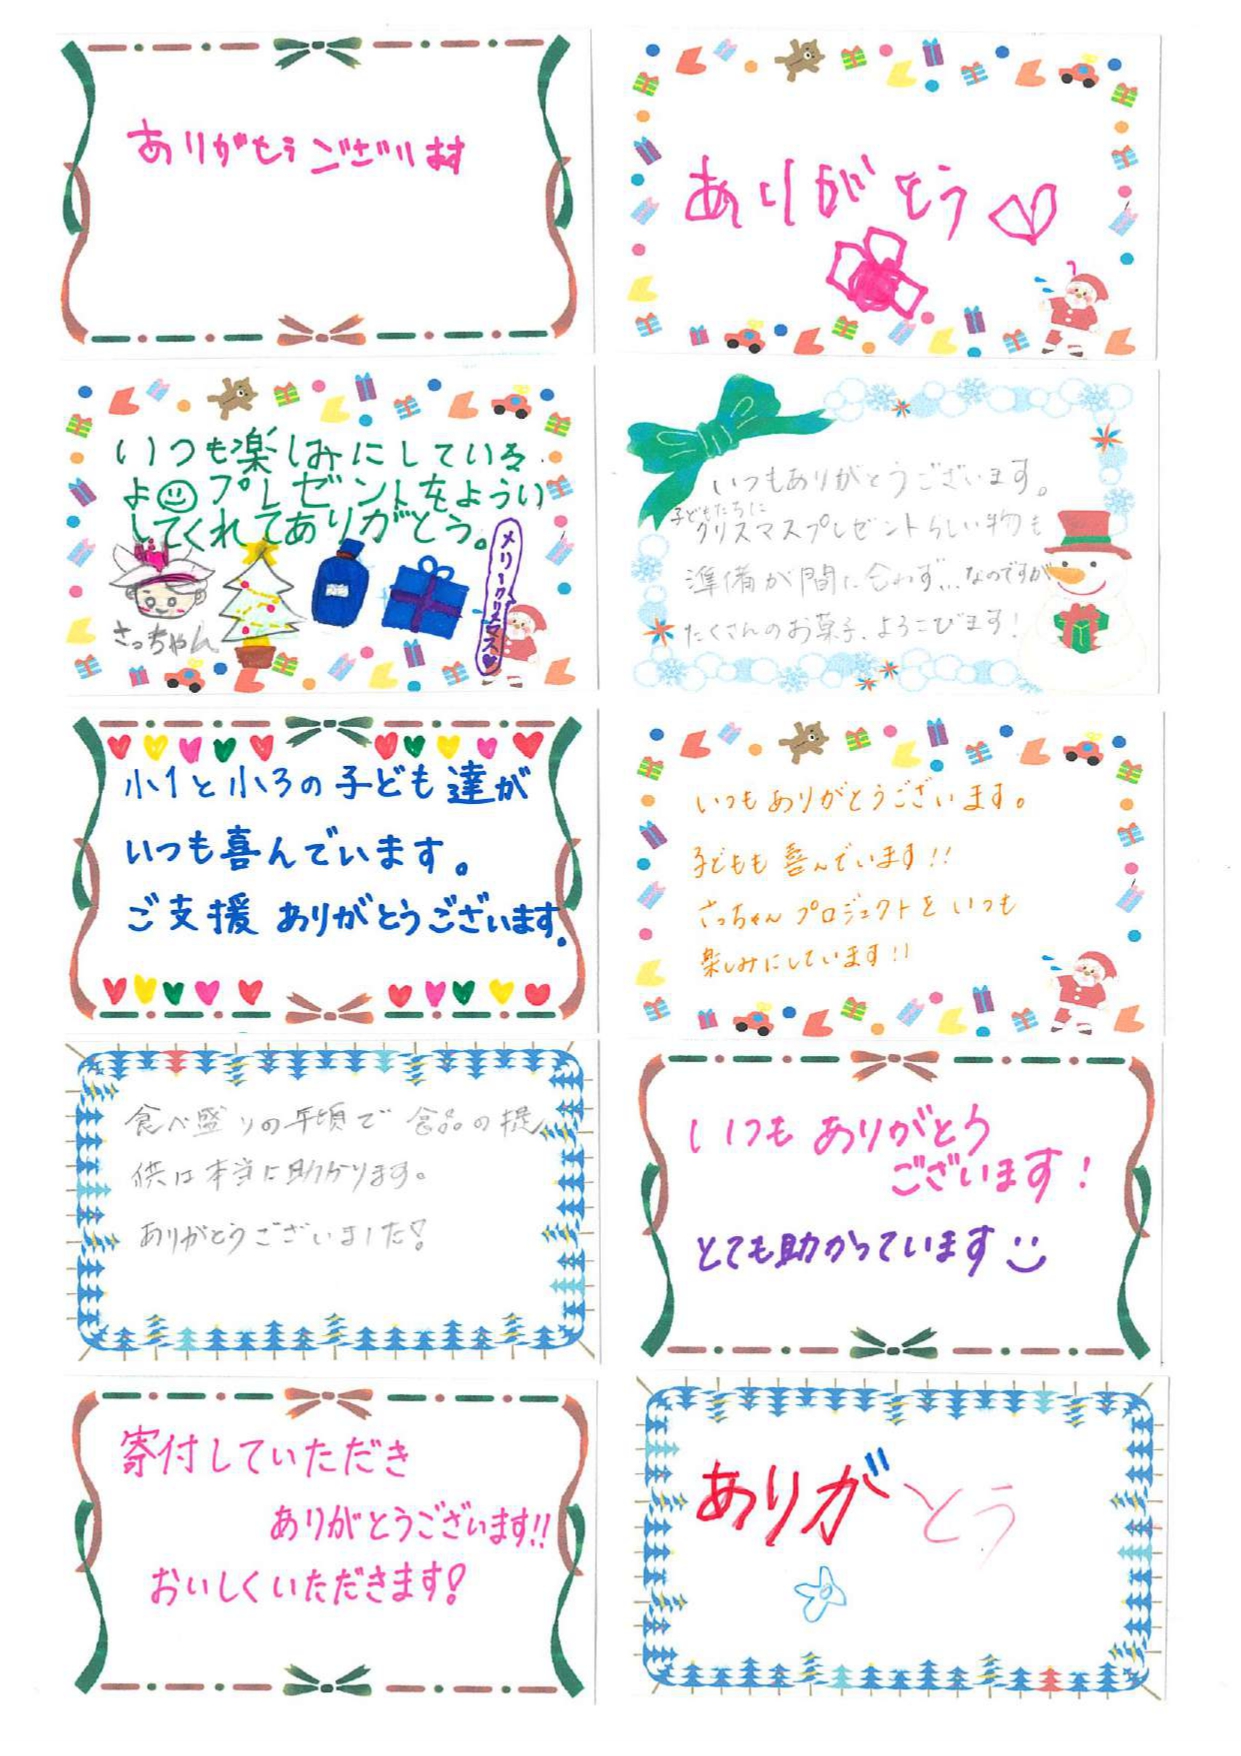 ありがとうございます
ありがとう
いつも楽しみにしている
よプレゼントをようい
してくれてありがとう。
メリークリスマス
さっちゃん
いつもありがとうございます。
子どもたちに
クリスマスプレゼントらしい物も
準備が間に合わず...なのですが
たくさんのお菓子、よろこびます!
小1と小3の子ども達が
いつも喜んでいます。
ご支援ありがとうございます。
いつもありがとうございます。
子どもも喜んでいます!!
さっちゃんプロジェクトをいつも
楽しみにしています!!
食べ盛りの年頃で食品の提
供は本当に助かります。
ありがとうございました!
いつもありがとう
ございます!
とても助かっています
寄付していただき
ありがとうございます!!
おいしくいただきます!
ありがとう